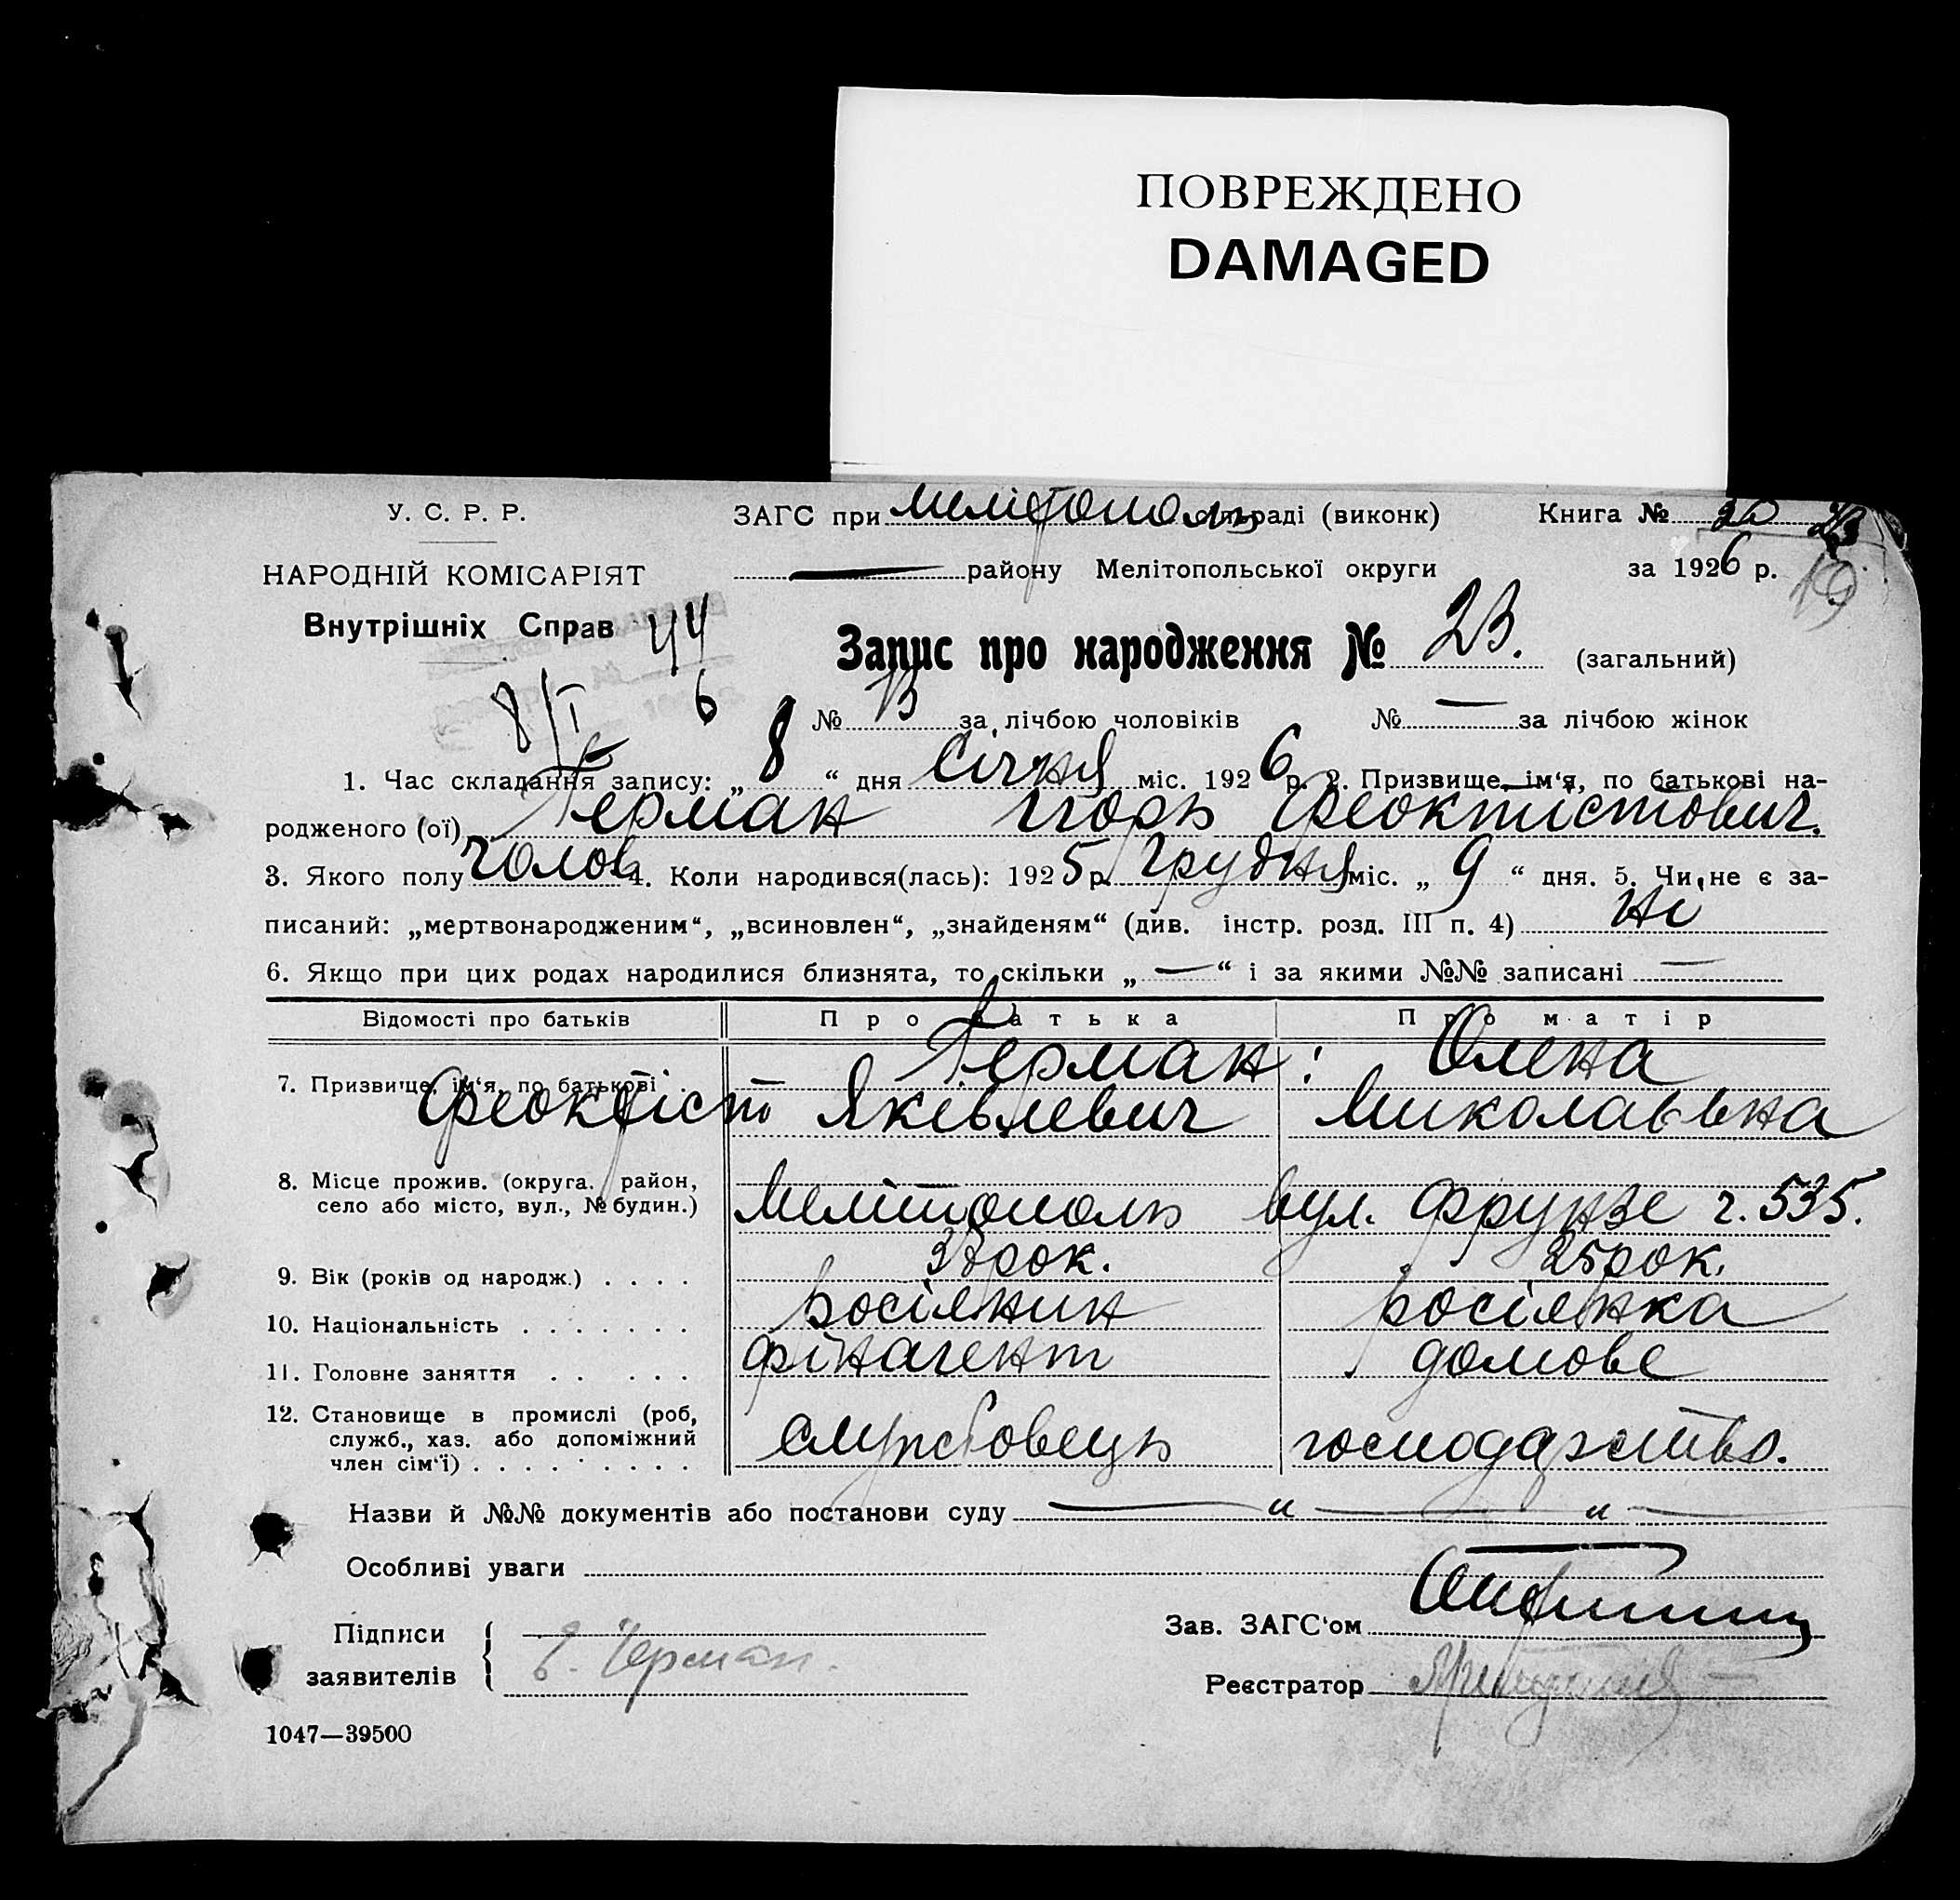 ПОВРЕЖДЕНО
DAMAGED
У. С. Р. Р.
ЗАГС при Мелітополь сільраді (виконк) Книга №
НАРОДНІЙ КОМІСАРІЯТ
— району Мелітопольської округи за 1926 р.
Внутрішніх Справ 44
Запис про народження № 23. (загальний)
8/I 6
№ 13 за лічбою чоловіків № — за лічбою жінок
1. Час складання запису: „ 8 “ дня Січня міс. 1926 р. 2. Призвище, ім‘я, по батькові на-
родженого (ої) Герман Ігорь Феоктистович.
3. Якого полу чолов 4. Коли народився(лась): 1925 р. Грудня міс. „ 9 “ дня. 5. Чи не є за-
писаний: „мертвонародженим“, „всиновлен“, „знайденям“ (див. інстр. розд. III п. 4) Ні
6. Якщо при цих родах народилися близнята, то скільки „ — “ і за якими №№ записані —
Відомості про батьків Про батька Про матір
7. Призвище, ім‘я, по батькові . Герман: Олена
Феоктіст Яківлевич Миколаівна
8. Місце прожив. (округа. район,
село або місто, вул., № будин.) Мелітополь вул. Фрунзе ч. 535.
9. Вік (років од народж.) . . . . рок. 25 рок.
10. Національність . . . . . . . росіянин росіянка
11. Головне заняття . . . . . . фінагент домове
12. Становище в промислі (роб,
служб., хаз. або допоміжний
член сім‘ї) . . . . . . . . . службовець господарство.
Назви й №№ документів або постанови суду — „ — „ —
Особливі уваги
Підписи
заявителів Герман.
Зав. ЗАГС‘ом
Реєстратор
1047—39500